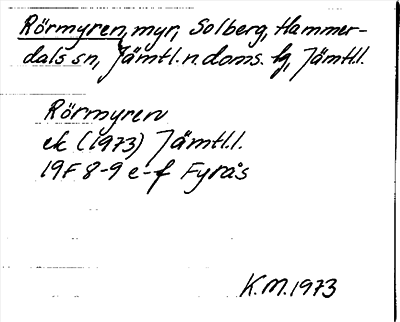 Rörmyren, myr, Solberg, Hammer-
dals sn, Jämtl. n doms. lg, Jämtl.l.
Rörmyren
ek (1973) Jämtl.l.
19F 8-9 e-f Fyrås
K.M. 1973